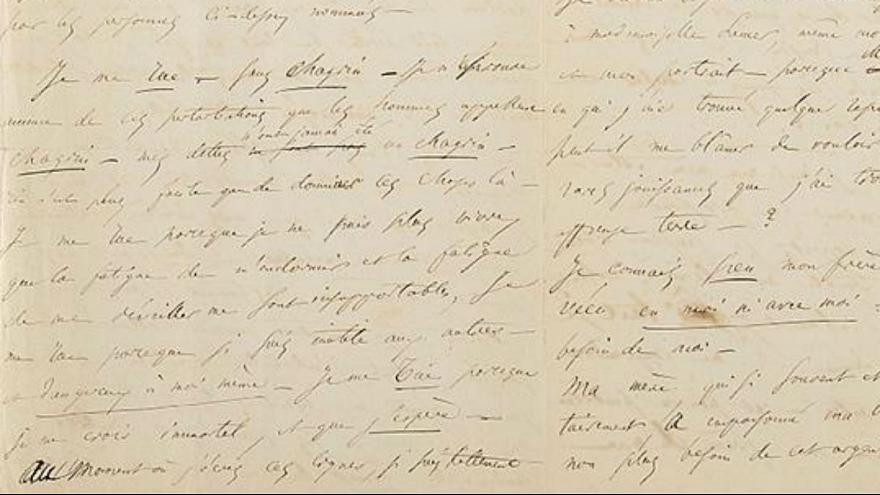 par les personnes ci-dessus nommées —
Je me tue — sans chagrin — Je n'éprouve
aucune de ces perturbations que les hommes appellent
chagrin — mes dettes n'ont jamais été un chagrin —
Rien n'est plus facile que de dominer ces choses là —
Je me tue parceque je ne puis plus vivre,
que la fatigue de m'endormir et la fatigue
de me réveiller me sont insupportables, Je
me tue parceque je suis inutile aux autres —
et dangereux à moi même — Je me tue parceque
je me crois immortel, et que j'espère —
Au moment où j'écris ces lignes, je suis tellement
à mademoiselle Lemer, même mo
et mon portrait — parceque
en qui j'aie trouvé quelque repo
peut-il me blâmer de vouloir
rares jouissances que j'ai tro
affreuse terre — ?
Je connais peu mon frère
vécu en moi ni avec moi —
besoin de moi —
Ma mère, qui si souvent et
tairement a empoisonné ma
non plus besoin de cet argen